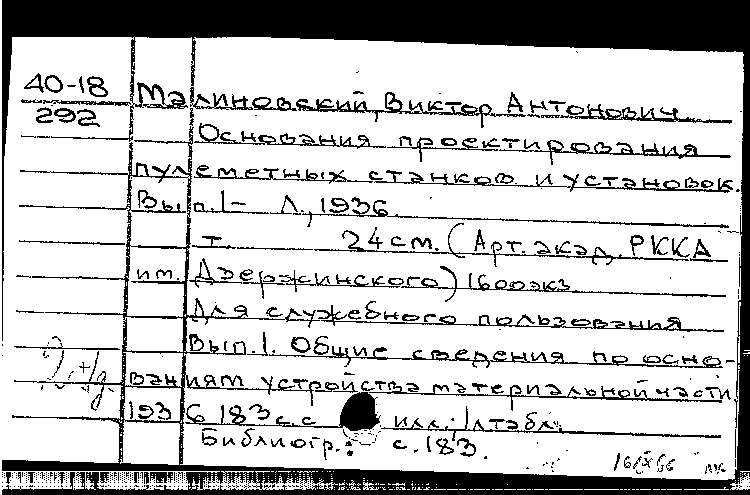 40-18
292
Малиновский, Виктор Антонович
Основания проектирования
пулеметных станков и установок.
Вып. 1- Л., 1936.
т. 24 см. (Арт. акад. РККА
им. Дзержинского) 1600 экз.
Для служебного пользования
Вып. 1. Общие сведения по осно-
ваниям устройства материальной части.
1936 183 с. с илл.; 1 табл.
Библиогр.: с. 183.